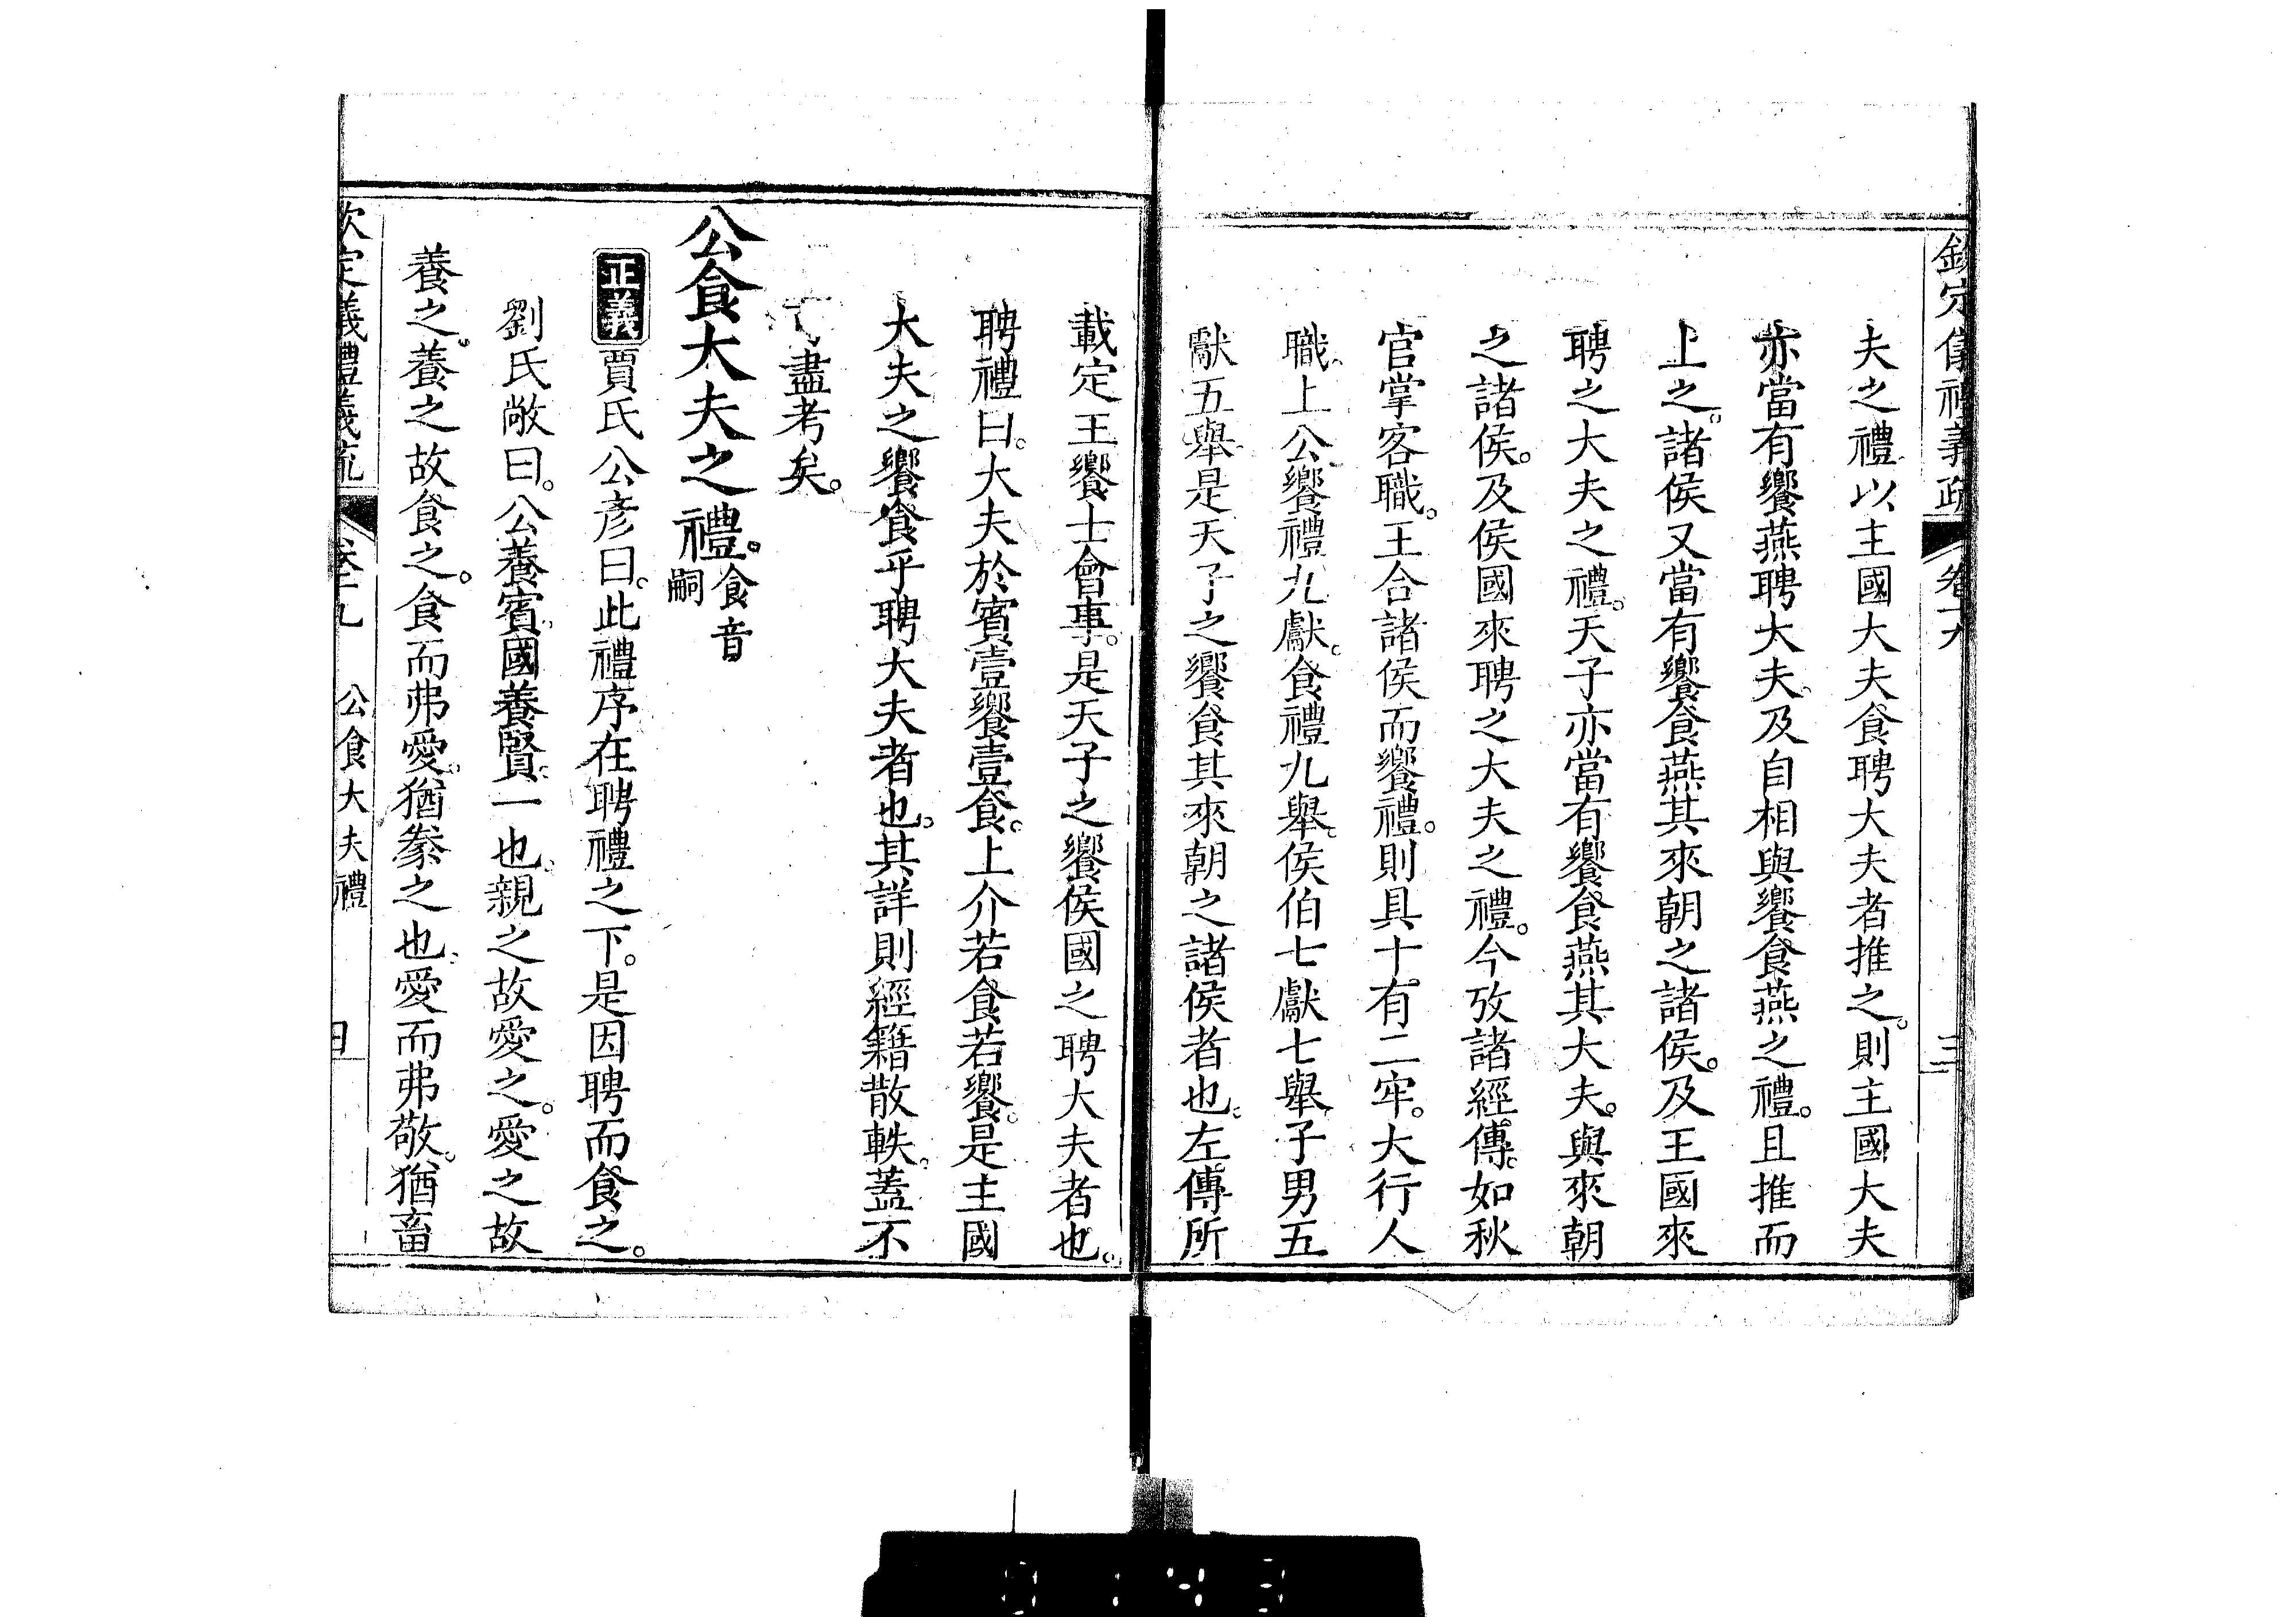 欽定儀禮義疏 卷十九 三
夫之禮以主國大夫食聘大夫者推之。則主國大夫
亦當有饗燕聘大夫。及自相與饗食燕之禮。且推而
上之。諸侯又當有饗食燕其來朝之諸侯。及王國來
聘之大夫之禮。天子亦當有饗食燕其大夫。與來朝
之諸侯。及侯國來聘之大夫之禮。今攷諸經傳。如秋
官掌客職。王合諸侯而饗禮。則具十有二牢。大行人
職。上公饗禮九獻。食禮九舉。侯伯七獻七舉。子男五
獻五舉。是天子之饗食其來朝之諸侯者也。左傳所
載定王饗士會事。是天子之饗侯國之聘大夫者也。
聘禮曰。大夫於賓壹饗壹食。上介若食若饗。是主國
大夫之饗食乎聘大夫者也。其詳則經籍散軼。蓋不
可盡考矣。
公食大夫之禮。食音嗣
正義 賈氏公彥曰。此禮序在聘禮之下。是因聘而食之。
劉氏敞曰。公養賓。國養賢。一也。親之故愛之。愛之故
養之。養之故食之。食而弗愛。猶豢之也。愛而弗敬。猶畜
欽定儀禮義疏 卷十九 公食大夫禮 四